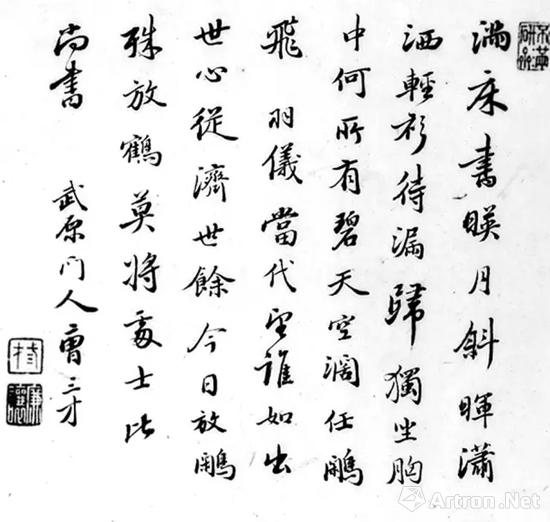 滿床書暎月斜暉瀟
洒輕衫待漏歸獨坐胸
中何所有碧天空濶任鷴
飛 羽儀當代望誰如出
世心從濟世餘今日放鷴
殊放鶴莫將處士比
尚書 武原門人曹三才
廉讓
Artron.Net